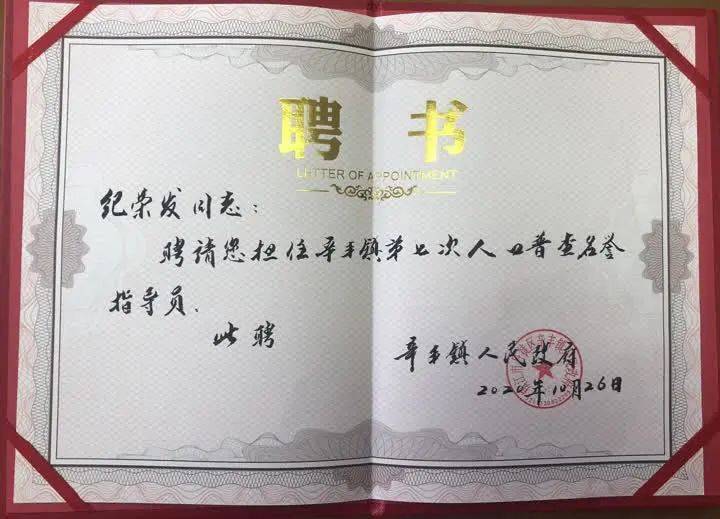 聘书
LETTER OF APPOINTMENT
纪荣发同志：
聘请您担任辛丰镇第七次人口普查名誉
指导员.
此聘
辛丰镇人民政府
2020年10月26日